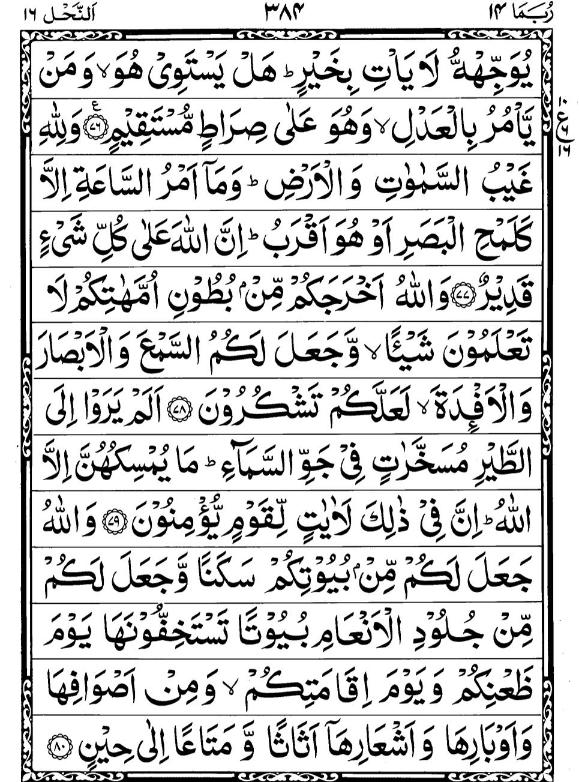 رُبَمَا ١٤ ٣٨٤ اَلنَّحْل ١٦
يُوَجِّهْهُّ لَا يَاْتِ بِخَيْرٍ ؕ هَلْ يَسْتَوِىْ هُوَ ۙ وَ مَنْ
يَّاْمُرُ بِالْعَدْلِ ۙ وَهُوَ عَلٰى صِرَاطٍ مُّسْتَقِيْمٍ ۟ع ﴿٧٦﴾ وَلِلّٰهِ
غَيْبُ السَّمٰوٰتِ وَ الْاَرْضِ ؕ وَمَاۤ اَمْرُ السَّاعَةِ اِلَّا
كَلَمْحِ الْبَصَرِ اَوْ هُوَ اَقْرَبُ ؕ اِنَّ اللّٰهَ عَلٰى كُلِّ شَىْءٍ
قَدِيْرٌ ﴿٧٧﴾ وَ اللّٰهُ اَخْرَجَكُمْ مِّنْۢ بُطُوْنِ اُمَّهٰتِكُمْ لَا
تَعْلَمُوْنَ شَيْـًٔا ۙ وَّ جَعَلَ لَكُمُ السَّمْعَ وَ الْاَبْصَارَ
وَ الْاَفْـِٕدَةَ ۙ لَعَلَّكُمْ تَشْكُرُوْنَ ﴿٧٨﴾ اَلَمْ يَرَوْا اِلَى
الطَّيْرِ مُسَخَّرٰتٍ فِىْ جَوِّ السَّمَآءِ ؕ مَا يُمْسِكُهُنَّ اِلَّا
اللّٰهُ ؕ اِنَّ فِىْ ذٰلِكَ لَاٰيٰتٍ لِّقَوْمٍ يُّؤْمِنُوْنَ ﴿٧٩﴾ وَ اللّٰهُ
جَعَلَ لَكُمْ مِّنْۢ بُيُوْتِكُمْ سَكَنًا وَّ جَعَلَ لَكُمْ
مِّنْ جُلُوْدِ الْاَنْعَامِ بُيُوْتًا تَسْتَخِفُّوْنَهَا يَوْمَ
ظَعْنِكُمْ وَ يَوْمَ اِقَامَتِكُمْ ۙ وَ مِنْ اَصْوَافِهَا
وَ اَوْبَارِهَا وَ اَشْعَارِهَاۤ اَثَاثًا وَّ مَتَاعًا اِلٰى حِيْنٍ ﴿٨٠﴾
١٠
ع
٦
١٦